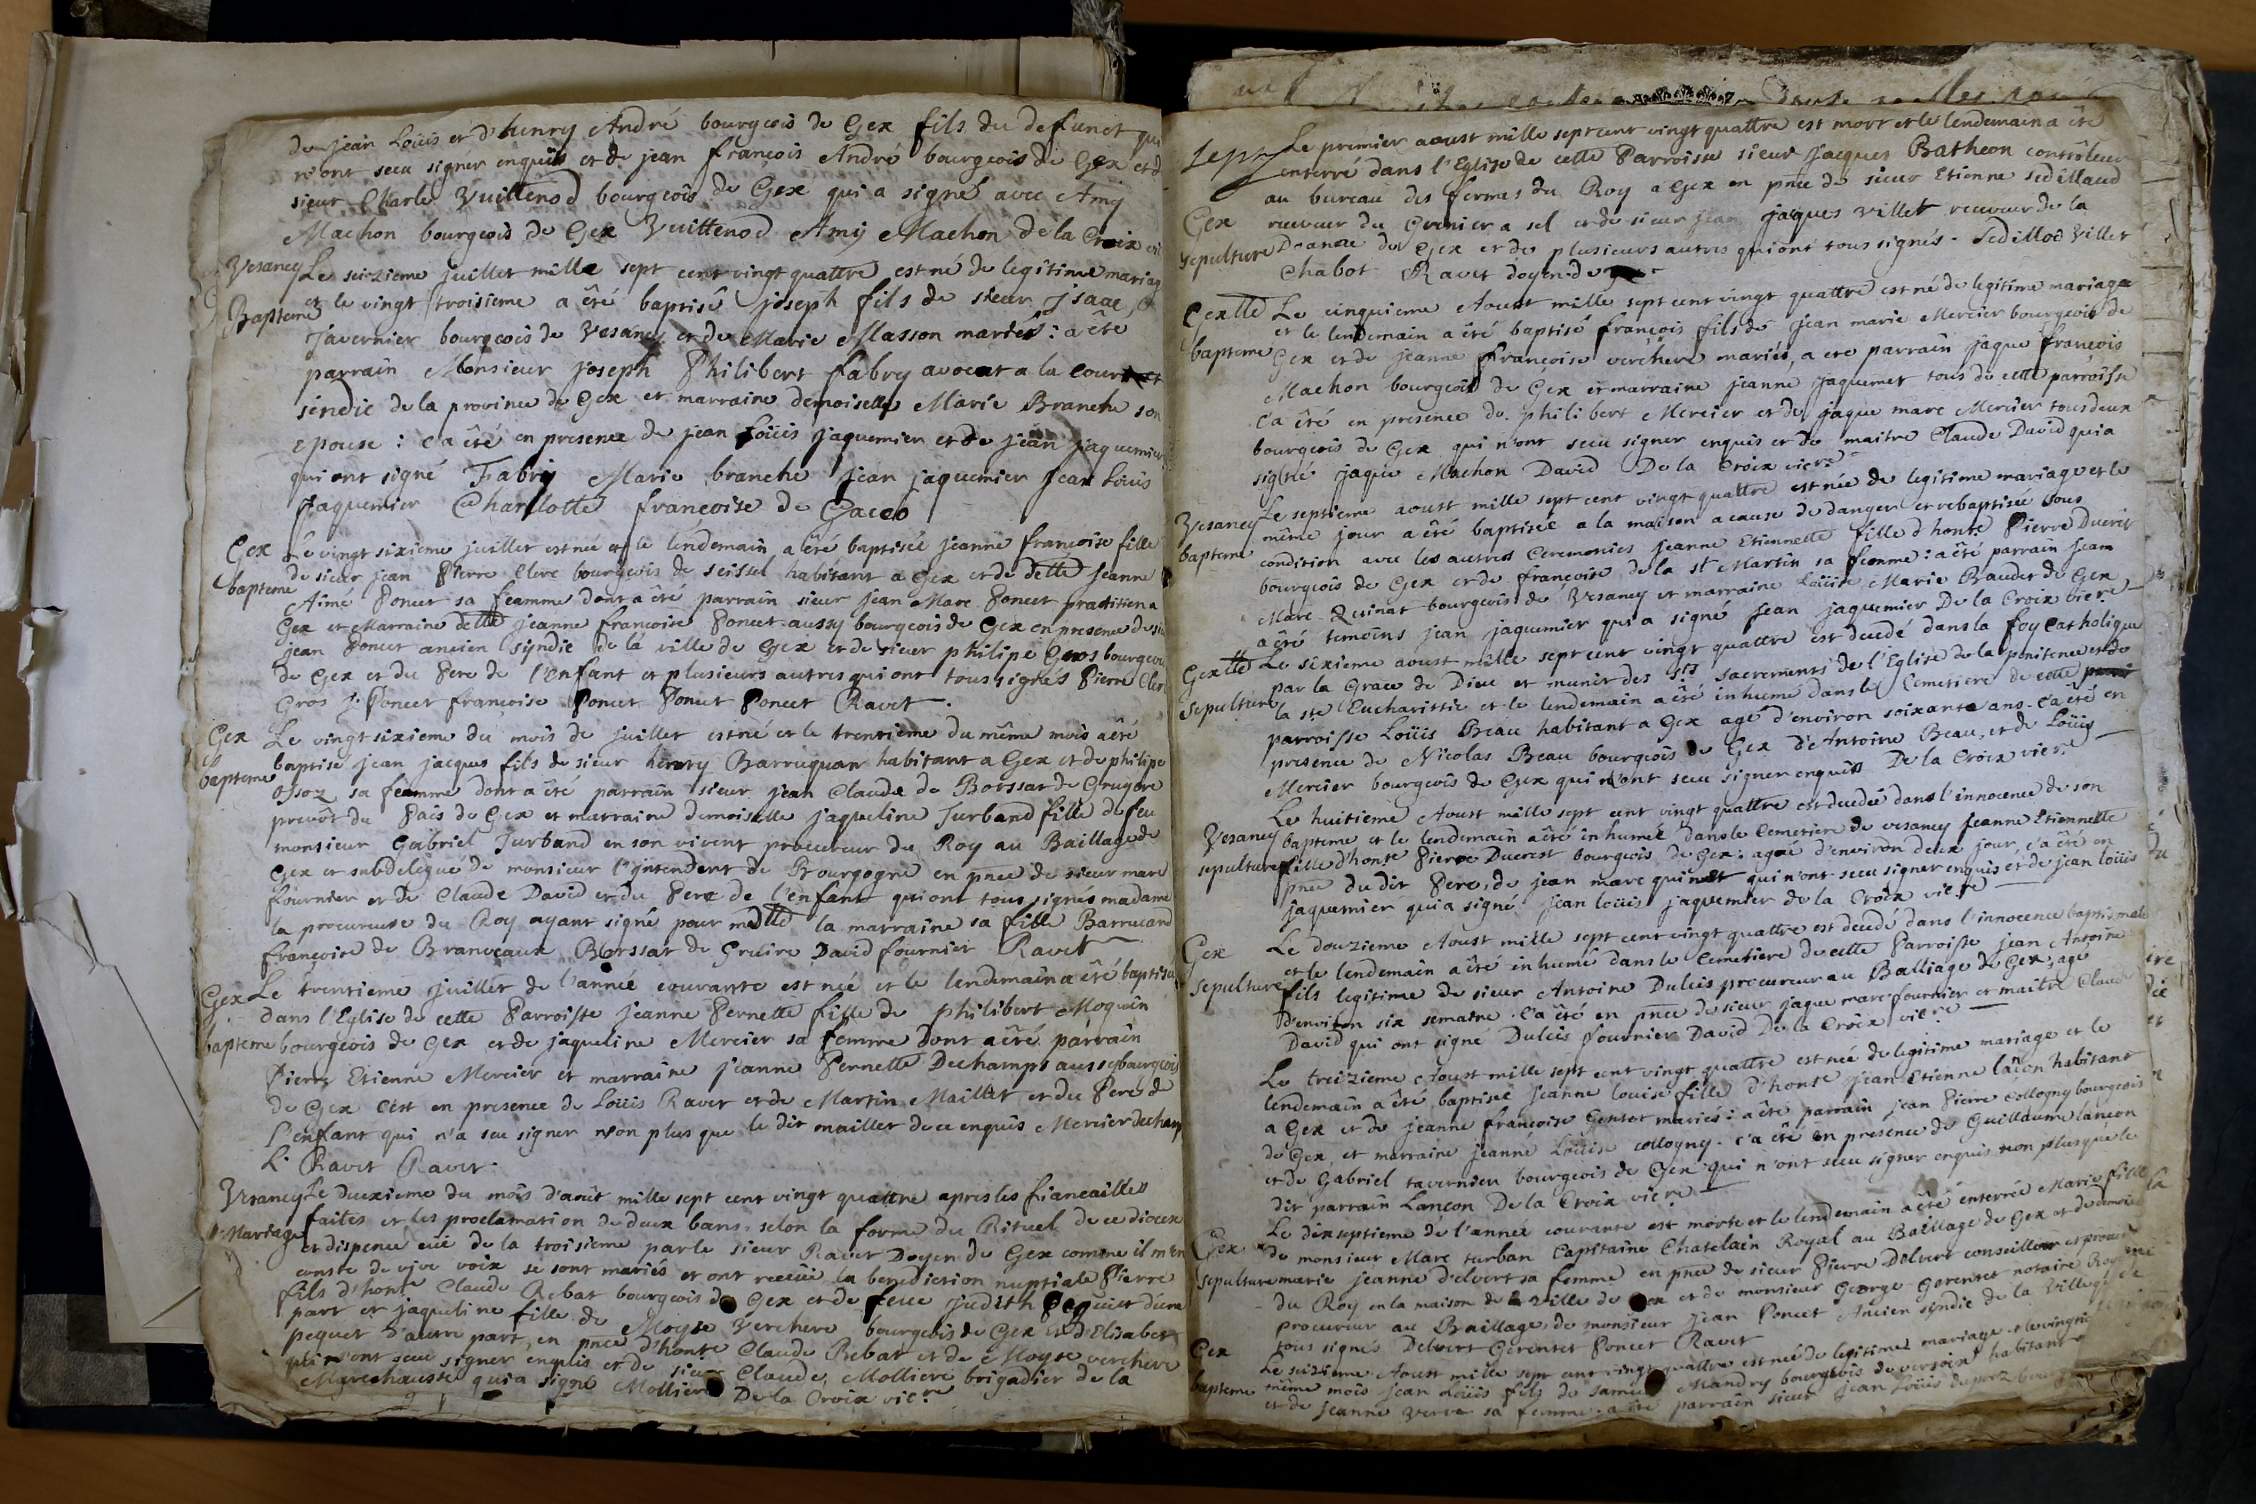 de jean Loüis et d'henry André bourgeois de Gex fils du defunct qui
n'ont sceu signer enquis et de jean françois André bourgeois de Gex et d
sieur Charle Vuillenod bourgeois de Gex qui a signé avec Amy
Machon bourgeois de Gex Vuittenod Amy Machon De la Croix vic
Vesancy Le seizieme juillet mille sept cent vingt quattre est né de legitime mariag
Bapteme et le vingt troisieme a êté baptisé joseph fils de sieur jsaac
Javernier bourgeois de Vesancy et de Marie Masson mariés : a êté
parrain Monsieur joseph Philibert fabry avocat a la Cour
sindic de la province de Gex et marraine demoiselle Marie Branche son
epouse : c'a êté en presence de jean Loüis jaquemier et de jean jaquemier
qui ont signé Fabry Marie branche jean jaquemier jean Loüis
jaquemier Charllotte françoise de Gacco
Gex Le vingt sixieme juillet est né et le lendemain a êté baptisée jeanne françoise fille
bapteme de sieur jean Pierre Clerc bourgeois de seissel habitant a Gex et de delle jeanne
Aimé Poncet sa feamme dont a êté parrain sieur jean Marc Poncet praditien a
Gex et Marraine delle jeanne françoise Poncet aussy bourgeois de Gex en presence de si
jean Poncet ancien syndic de la ville de Gex et de sieur philipe Gros bourgeoi
de Gex et du Pere de l'enfant et plusieurs autres qui ont tous signés Pierre Clerc
Gros J. Poncet françoise Poncet Poncet Poncet Ravet.
Gex Le vingt sixieme du mois de juillet est né et le trentieme du même mois a êté
bapteme baptisé jean jacques fils de sieur henry Barruquan habitant a Gex et de philipe
ossoz sa feamme dont a êté parrain sieur jean Claude de Borssat de Gruyere
prevôt du Païs de Gex et marraine demoiselle jaqueline Turband fille de feu
monsieur Gabriel Turband en son vivent procureur du Roy au Baillage de
Gex et subdelegué de monsieur l'jntendent de Bourgogne en pnce de sieur marc
fournier et de Claude David et du Pere de l'enfant qui ont tous signés madame
la procureuse du Roy ayant signé pour mdlle la marraine sa fille Barrucand
françoise de Branveaux Borssat de Gruire David fournier Ravet
Gex Le trentieme juillet de l'année courante est née et le lendemain a êté baptisé
dans l'Eglise de cette Parroisse jeanne Pernette fille de philibert Moquin
bapteme bourgeois de Gex et de jaqueline Mercier sa femme dont a êté parrain
Pierre Etienne Mercier et marraine jeanne Pernette Dechamps aussy bourgeois
de Gex c'est en presence de Loüis Ravet et de Martin Maillet et du Pere de
l'enfant qui n'a sceu signer non plus que le dit maillet de ce enquis Mercier dechamp
L. Ravet Ravet.
Vesancy Le deuxieme du mois d'août mille sept cent vingt quattre apres les fiancailles
Mariage faites et les proclamation de deux bans selon la forme du Rituel de ce diocese
et dispence eüe de la troisieme par le sieur Ravet Doyen de Gex comme il m'en
conste de vive voix se sont mariés et ont receüi la benediction nuptiale Pierre
fils d'honte Claude Rebat bourgeois de Gex et de feue judith Pequiet d'une
part et jaqueline fille de Moyse Verchere bourgeois de Gex et d'Elisabet
pequet d'autre part, en pnce d'honte Claude Rebat et de Moyse verchere
qui n'ont sceu signer enquis et de sieur Claude Molliere brigadier de la
Marechaussé qui a signé Mollier De la Croix vicre
Le premier aoust mille sept cent vingt quattre est mort et le lendemain a êté
enterré dans l'Eglise de cette Parroisse sieur Jacques Batheon contrôleur
au bureau des fermes du Roy a Gex en pnce de sieur Etienne sedillaud
Gex receveur du Grenier a sel et de sieur jean jaques villet receveur de la
sepulture Doanne de Gex et de plusieurs autres qui ont tous signés. Sedillod Villet
Chabot Ravet doyen de
Gex Le cinquieme Aoust mille sept cent vingt quattre est né de legitime mariage
et le lendemain a êté baptisé françois fils de jean marie Mercier bourgeois de
bapteme Gex et de jeanne françoise verchere mariés, a ete parrain jaque françois
Machon bourgeois de Gex et marraine jeanne jaquemet tous de cette parroisse
c'a êté en presence de philibert Mercier et de jaque marc Mercier tous deux
bourgeois de Gex qui n'ont sceu signer enquis et de maitre Claude David qui a
signé jaque Machon David De la Croix vicre
Vesancy Le septieme aoust mille sept cent vingt quattre est née de legitime mariage et le
même jour a êté baptiseé a la maison a cause de danger et rebaptisée sous
bapteme condition avec les autres Ceremonies jeanne Etiennette fille d'honte Pierre Ducret
bourgeois de Gex et de françoise de la st Martin sa femme : a êté parrain jean
Marc Quinat bourgeois de Vesancy et marraine Loüise Marie Baudet de Gex,
a êté temoins jean jaquemier qui a signé jean jaquemier De la Croix vicre
Gex Le sixieme aoust mille sept cent vingt quattre est decedé dans la foy Catholique
par la Grace de Dieu et munit des sts Sacrements de l'Eglise de la penitence et de
sepulture la ste Eucharistie et le lendemain a êté inhumé dans le Cemetiere de cette
parroisse Loüis Beau habitant a Gex agé d'environ soixante ans. c'a êté en
presence de Nicolas Beau bourgeois de Gex d'Antoine Beau, et de Loüis
Mercier bourgeois de Gex qui n'ont sceu signer enquis De la Croix vicre
Le huitieme Aoust mille sept cent vingt quattre est decedée dans l'innocence de son
Vesancy bapteme et le lendemain a êté inhumée dans le Cemetiere de vesancy jeanne Etiennette
sepulture fille d'honte Pierre Ducrest bourgeois de Gex : ageé d'environ deux jour, c'a êté en
pnce du dit Pere, de jean marc quinat qui n'ont sceu signer enquis et de jean loüis
jaquemier qui a signé. jean loüis jaquemier de la Croix vicre
Gex Le douzieme Aoust mille sept cent vingt quattre est decedé dans l'innocence baptismale
et le lendemain a êté inhumé dans le Cemetiere de cette Parroisse jean Antoine
sepulture fils legitime de sieur Antoine Dulcis procureur au Balliage de Gex, age
d'environ six semaine. c'a êté en pnce de sieur jaque marc fournier et maitre Claude
David qui ont signé Dulcis fournier David De la Croix vicre
Le treizieme Aoust mille sept cent vingt quattre est née de legitime mariage et le
lendemain a êté baptisée jeanne louise fille d'honte jean Etienne laçon habitant
a Gex et de jeanne françoise Gentet mariés : a êté parrain jean Pierre Collogny bourgeois
de Gex, et marraine jeanne Loüise collogny. c'a êté en presence de Guillaume lançon
et de Gabriel tavernier bourgeois de Gex qui n'ont sceu signer enquis non plus que le
dit parrain Lançon De la Croix vicre
Le dix septieme de l'année courante est morte et le lendemain a êté enterrée Marie fille
Gex de monsieur Marc turban Capitaine Chatelain Royal au Baillage de Gex et de demoi
sepulture marie jeanne d'elvert sa femme en pnce de sieur Pierre Delvert conseiller et procur
du Roy en la maison de ville de Gex et de monsieur George Gerentet notaire Roy
procureur au Baillage, de monsieur jean Poncet Ancien syndic de la Ville
tous signés Delvert Gerentet Poncet Ravet
Gex Le seizieme Aoust mille sept cent vingt quattre est né de legitime mariage et le vingt
bapteme même mois jean Loüis fils de samuel Mandry bourgeois de versoix habitant
et de jeanne verve sa femme : a êté parrain sieur jean Loüis